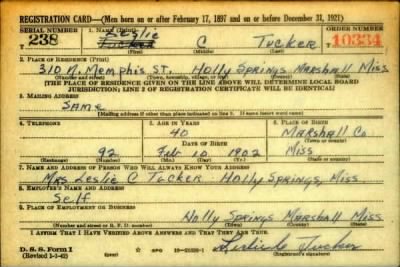 REGISTRATION CARD—(Men born on or after February 17, 1897 and on or before December 31, 1921)
SERIAL NUMBER 1. NAME (Print) ORDER NUMBER
238 Leslie C Tucker 10334
Tucker
(First) (Middle) (Last)
2. PLACE OF RESIDENCE (Print)
310 N. Memphis ST. Holly Springs Marshall Miss
(Number and street) (Town, township, village, or city) (County) (State)
[THE PLACE OF RESIDENCE GIVEN ON THE LINE ABOVE WILL DETERMINE LOCAL BOARD
JURISDICTION; LINE 2 OF REGISTRATION CERTIFICATE WILL BE IDENTICAL]
3. MAILING ADDRESS
Same
[Mailing address if other than place indicated on line 2. If same insert word same]
4. TELEPHONE 5. AGE IN YEARS 6. PLACE OF BIRTH
40 Marshall Co
DATE OF BIRTH (Town or county)
92 Feb 10 1902 Miss
(Exchange) (Number) (Mo.) (Day) (Yr.) (State or country)
7. NAME AND ADDRESS OF PERSON WHO WILL ALWAYS KNOW YOUR ADDRESS
Mrs Leslie C Tucker Holly Springs, Miss
8. EMPLOYER'S NAME AND ADDRESS
Self
9. PLACE OF EMPLOYMENT OR BUSINESS
Holly Springs Marshall Miss
(Number and street or R. F. D. number) (Town) (County) (State)
I AFFIRM THAT I HAVE VERIFIED ABOVE ANSWERS AND THAT THEY ARE TRUE.
D. S. S. Form 1 GPO Leslie C Tucker
(Revised 1-1-42) (Registrant's signature)